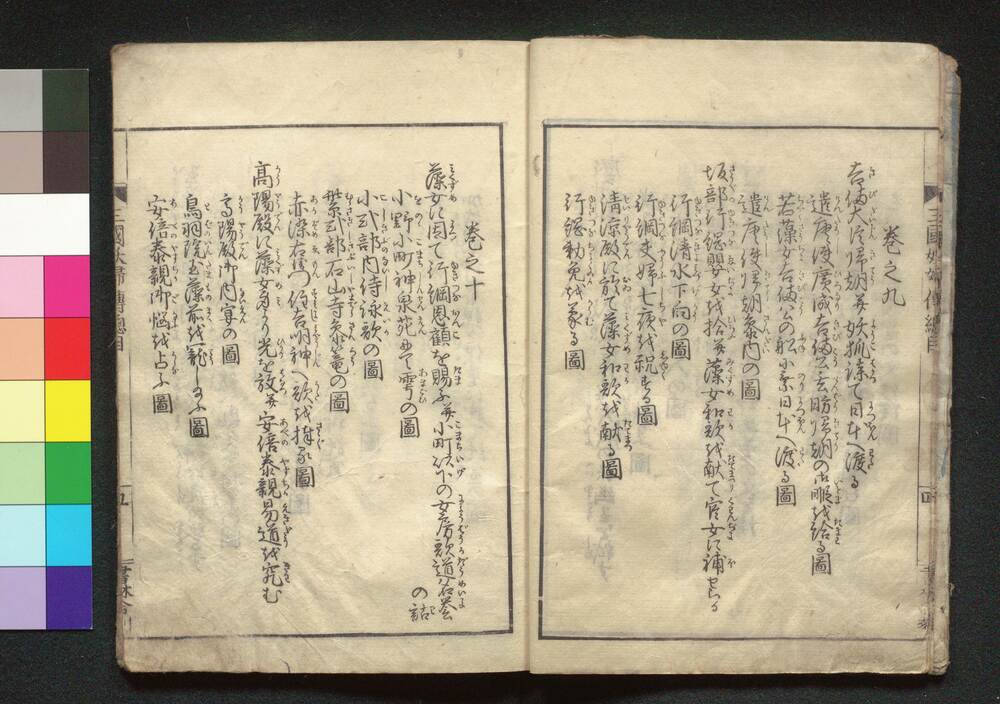 巻之九
吉備大臣帰朝并妖狐陰て日本へ渡る
遣唐使廣成吉備公玄昉帰朝の御暇を給る圖
若藻女吉備公の船に乗日本へ渡る圖
遣唐使帰朝参内の圖
坂部行綱嬰女を拾并藻女和歌を献て官女に補せらる
行綱清水下向の圖
行綱夫婦七夜を祝する圖
清涼殿に於て藻女和歌を献る圖
行綱勅免を蒙る圖
巻之十
藻女に因て行綱恩顧を賜ふ并小町以下の女房歌道名誉の話
小野小町神泉苑にて雩の圖
小式部内侍詠歌の圖
紫式部石山寺参篭の圖
赤染右衛門住吉明神へ歌を捧る圖
高陽殿に藻女身より光を放并安倍泰親易道を究む
高陽殿御内宴の圖
鳥羽院玉藻前を寵し給ふ圖
安倍泰親御悩を占ふ圖
三國妖婦傳總目
四
三國妖婦傳總目
五